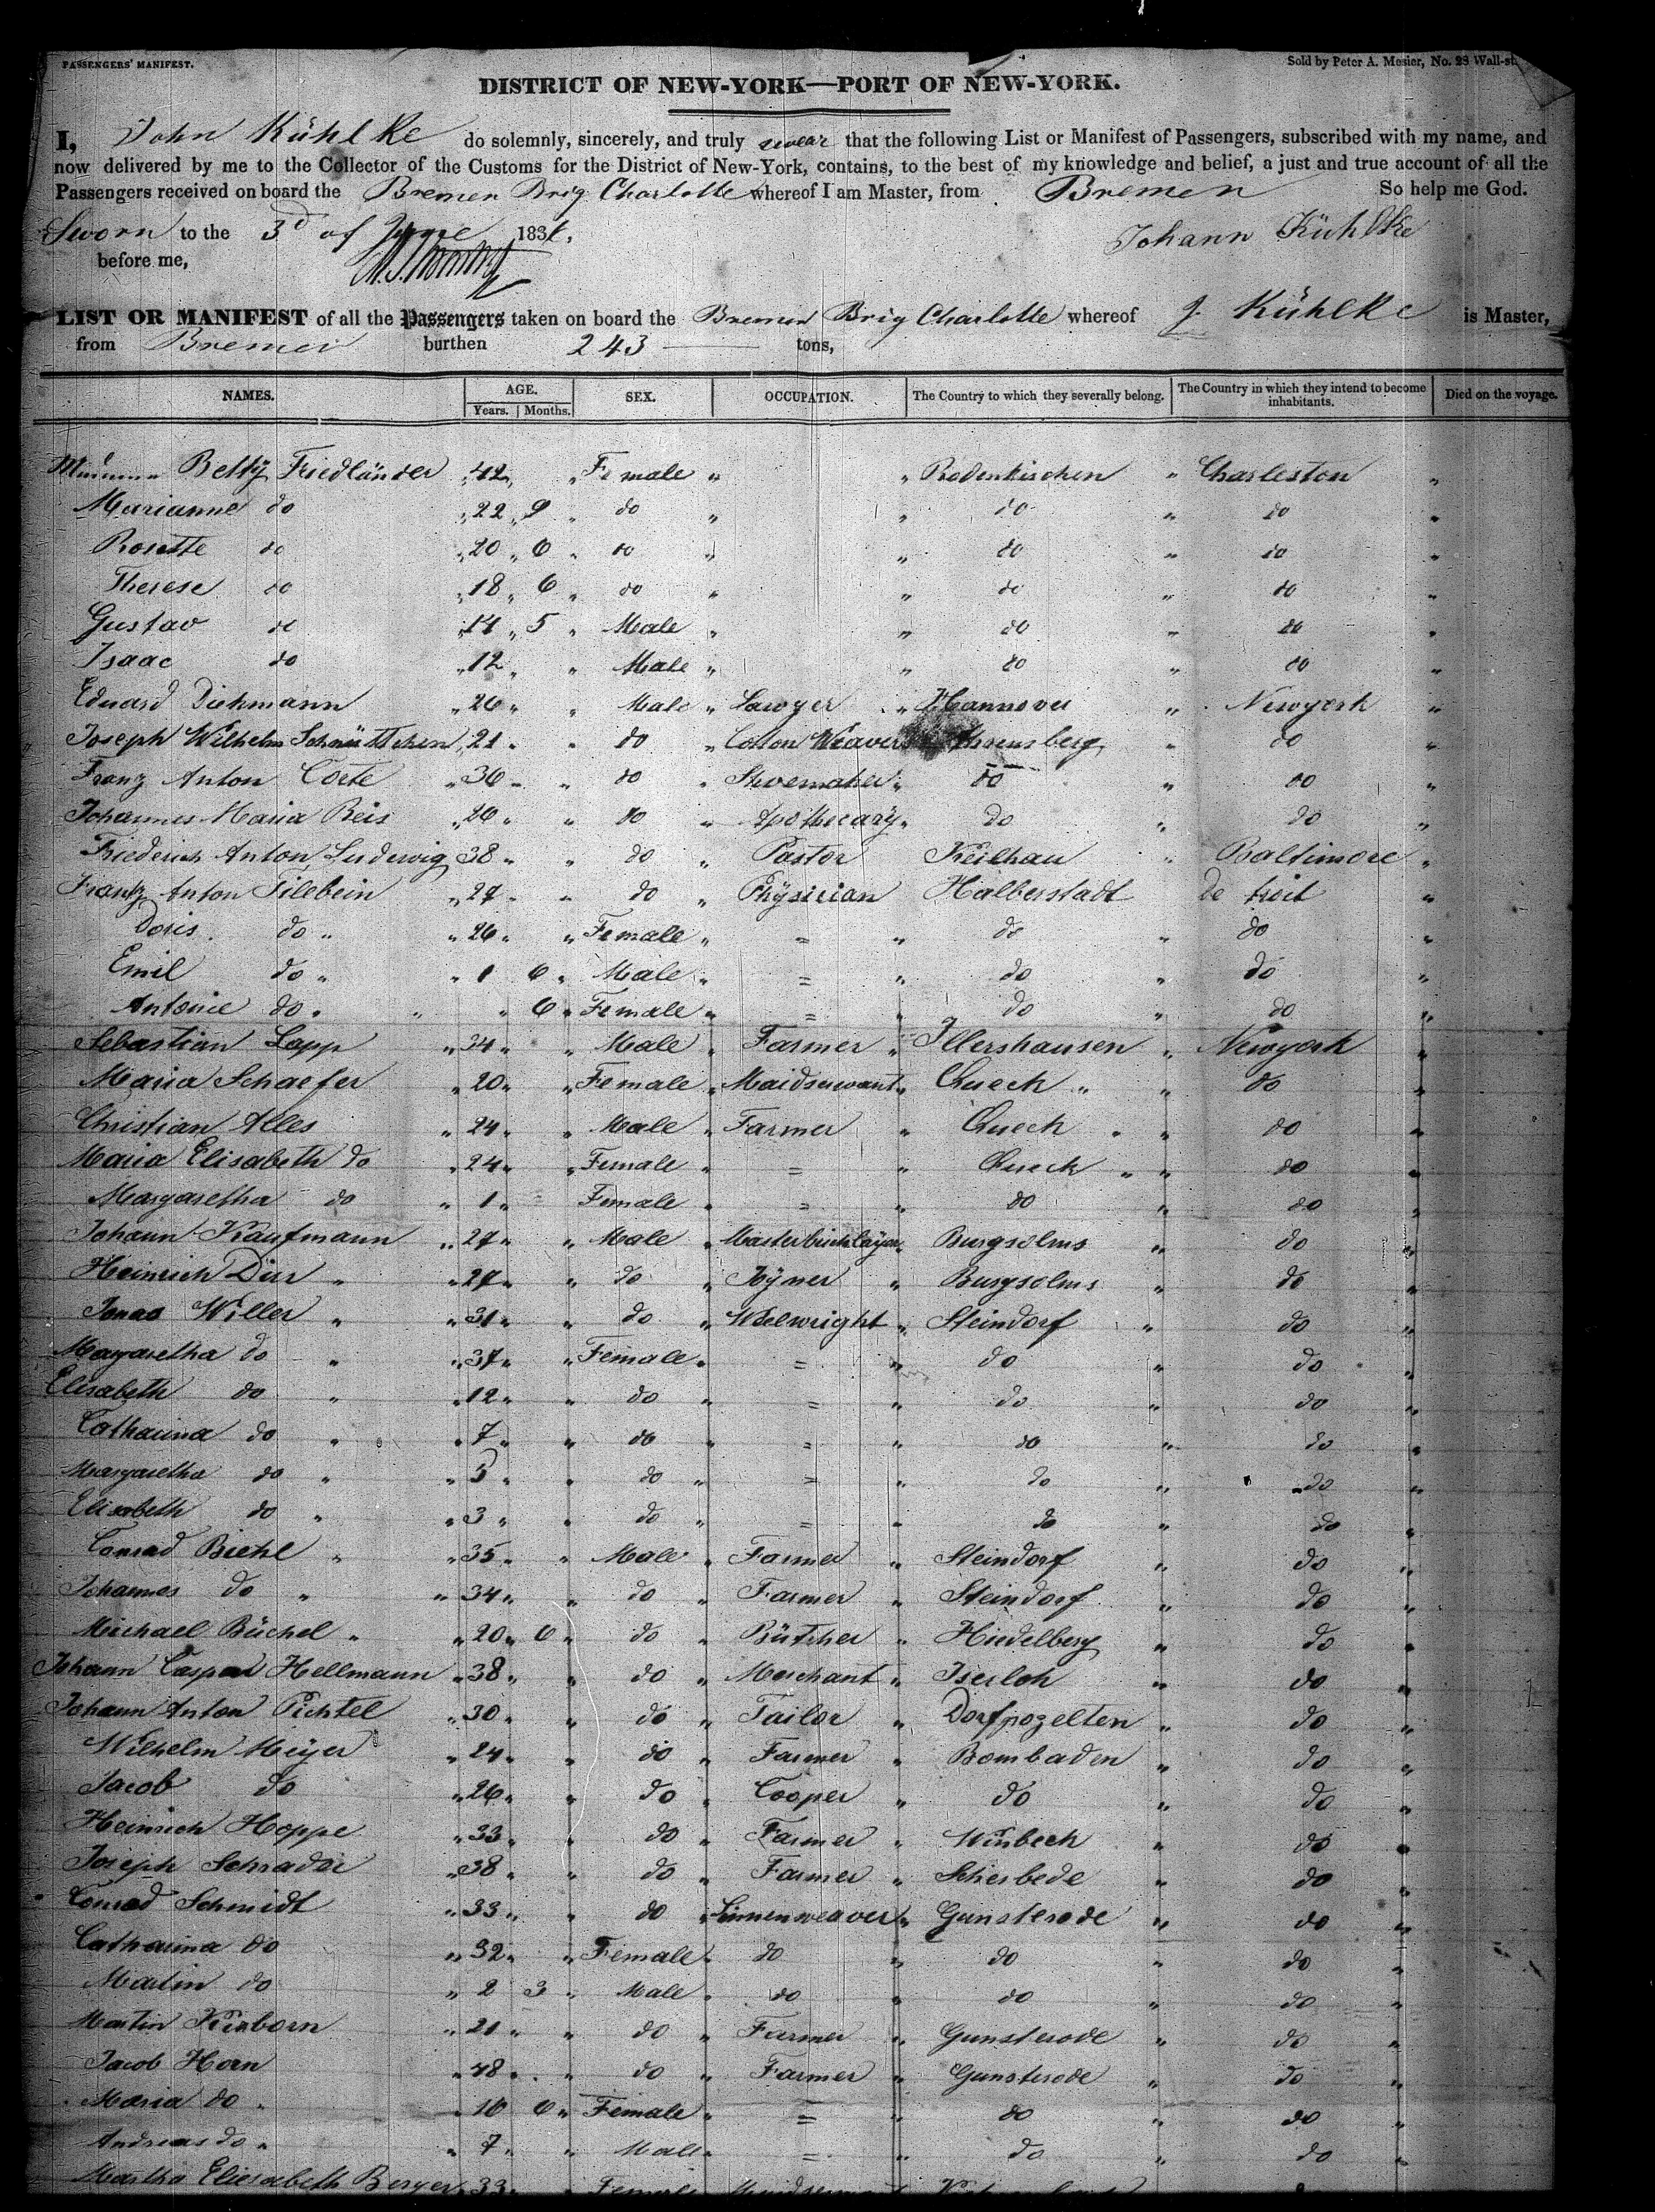 PASSENGERS' MANIFEST.
Sold by Peter A. Mesier, No. 28 Wall-st.
DISTRICT OF NEW-YORK—PORT OF NEW-YORK.
I, John Kühlke do solemnly, sincerely, and truly swear that the following List or Manifest of Passengers, subscribed with my name, and
now delivered by me to the Collector of the Customs for the District of New-York, contains, to the best of my knowledge and belief, a just and true account of all the
Passengers received on board the Bremen Brig Charlotte whereof I am Master, from Bremen So help me God.
Sworn to the 3d of June 183
Johann Kühlke
before me,
LIST OR MANIFEST of all the Passengers taken on board the Bremen Brig Charlotte whereof J. Kühlke is Master,
from Bremen burthen 243 tons,
NAMES. AGE. SEX. OCCUPATION. The Country to which they severally belong. The Country in which they intend to become inhabitants. Died on the voyage.
Years. Months.
Betty Friedländer " 42 " " Female " " Rodenkischen " Charleston "
Marianne do " 22 " 9 " do " " do " do "
Rosette do " 20 " 6 " do " " do " do "
Therese do " 18 " 6 " do " " do " do "
Gustav do " 14 " 5 " Male " " do " do "
Isaac do " 12 " " Male " " do " do "
Eduard Diekmann " 26 " " Male " Lawyer " Hannover " Newyork "
Joseph Wilhelm " 21 " " do " Cotton Weaver " do "
Franz Anton Corte " 36 " " do " Shoemaker " do " do "
Johannes Maria Reis " 26 " " do " Apothecary " do " do "
Friederich Anton Ludewig 38 " " do " Pastor Keilhau " Baltimore "
Frantz Anton Tilebein " 27 " " do " Physician Halberstadt De troit "
Doris do " " 26 " " Female " = " do " do "
Emil do " " 1 6 " Male " = " do " do "
Antonie do " " " 6 " Female " = " do " do "
Sebastian Lapp " 34 " " Male " Farmer " Illershausen " Newyork "
Maria Schaefer " 20 " " Female " Maidservant " Queck " " do
Christian Alles " 24 " " Male " Farmer " Queck " " do "
Maria Elisabeth do " 24 " " Female " = " Queck " " do "
Margaretha do " 1 " = Female " = " do " do "
Johann Kaufmann " 27 " " Male " Masterbricklayer " Burgsolms " do "
Heinrich Dür " " 27 " " do " Joyner " Burgsolms " do
Jonas Willer " " 31 " " do " Wheelwright " Steindorf " do "
Margaretha do " " 37 " " Female " = " do " do "
Elisabeth do " " 12 " " do " = " do " do "
Catharina do " " 7 " " do " = " do " do "
Margaretha do " " 5 " " do " = " do " do "
Elisabeth do " " 3 " " do " = " do " do "
Conrad Biehl " " 35 " " Male " Farmer " Steindorf " do "
Johannes do " " 34 " " do " Farmer " Steindorf " do "
Michael Büchel " " 20 " 6 " do " Bütcher " Hiedelberg " do "
Johann Caspar Hellmann " 38 " " do " Merchant " Iserloh " do "
Johann Anton Pichtel " 30 " " do " Tailor " Dorfpozelten " do "
Wilhelm Meÿer " 24 " " do " Farmer " Bombaden " do "
Jacob do " 26 " " do " Cooper " do " do "
Heinrich Hoppe " 33 " " do " Farmer " Winbeck " do "
Joseph Schrader " 38 " " do " Farmer " Scherbede " do "
Conrad Schmidt " 33 " " do " Linnenweaver " Gunsterode " do "
Catharina do " 32 " " Female " do " do " do "
Martin do " 2 3 " Male " do " do " do "
Martin Kirborn " 21 " " do " Farmer " Gunsterode " do "
Jacob Horn " 48 " " do " Farmer " Gunsterode " do "
Maria do " " 16 6 " Female " = " do " do "
Andreas do " " 7 " " Male " = " do " do "
Martha Eliesabeth Berger " 33 " " Female